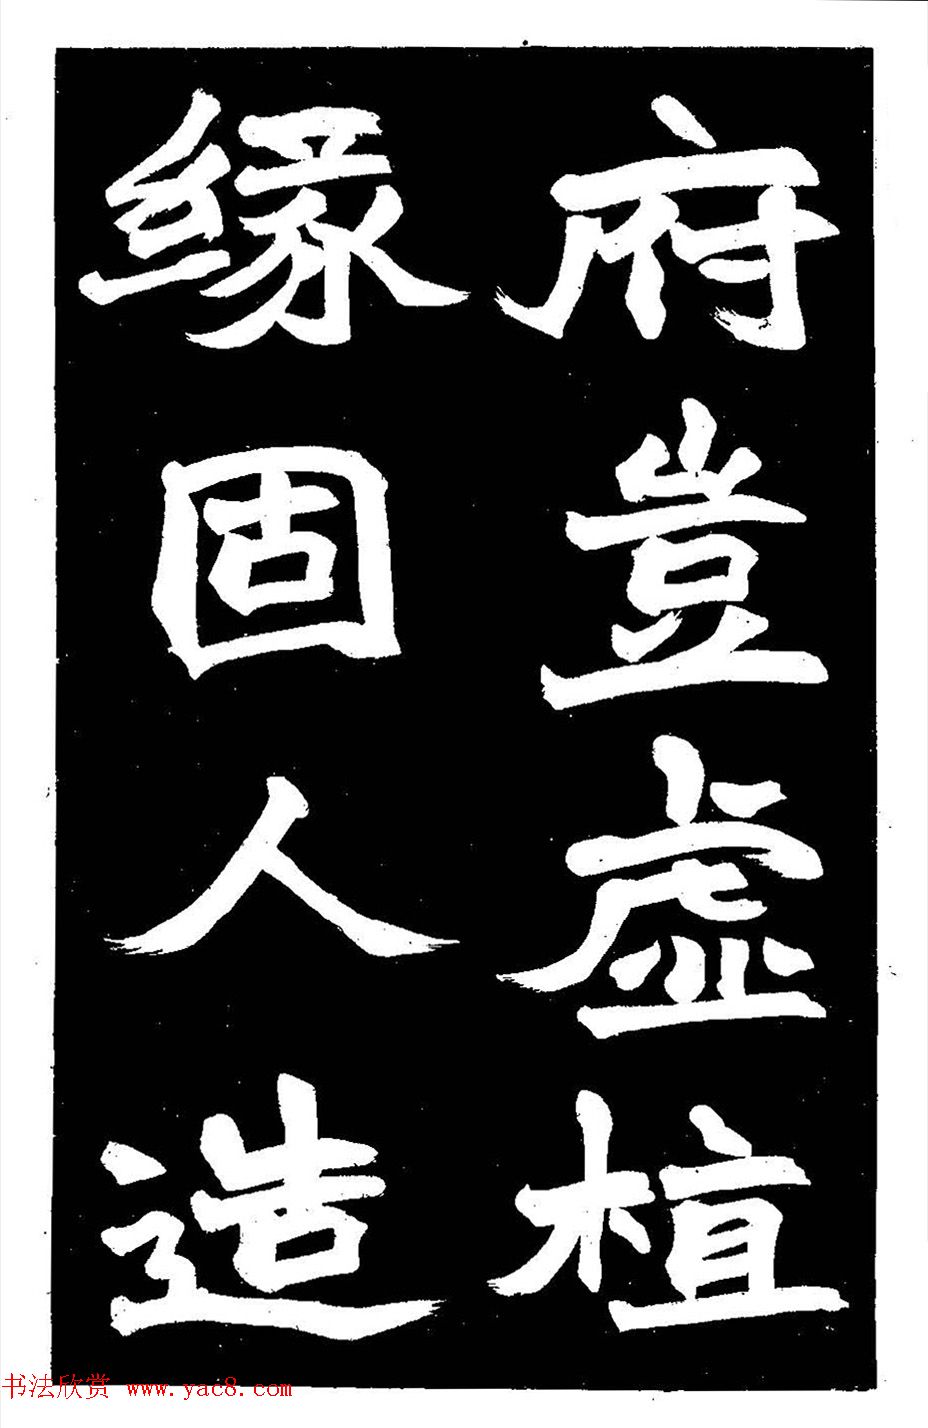 府豈虛植
緣固人造
书法欣赏 www.yac8.com